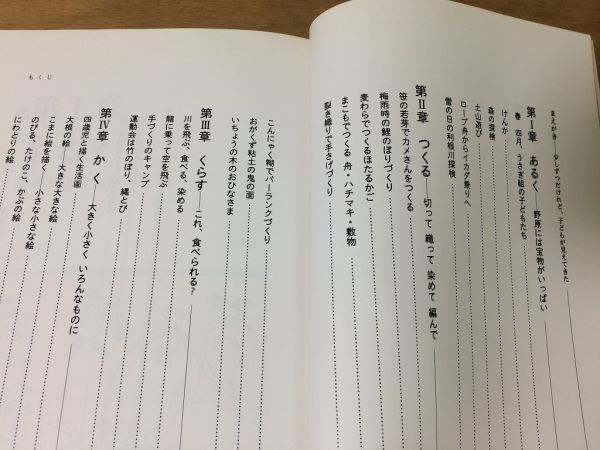 まえがき 少しずつだけれど、子どもが見えてきた
第Ⅰ章 あるく——野原には宝物がいっぱい
春 四月、うさぎ組の子どもたち
けんか
森の探検
土山遊び
ロープ舟からイカダ乗りへ
雪の日の利根川探検
第Ⅱ章 つくる——切って 織って 染めて 編んで
笹の若芽でカメさんをつくる
梅雨時の鯉のぼりづくり
麦わらでつくるほたるかご
まこもでつくる 舟・ハチマキ・敷物
裂き織りで手さげづくり
こんにゃく糊でパーランクづくり
おがくず粘土の鬼の面
いちょうの木のおひなさま
第Ⅲ章 くらす——これ、食べられる?
川を飛ぶ、食べる、染める
龍に乗って空を飛ぶ
手づくりのキャンプ
運動会は竹のぼり、縄とび
第Ⅳ章 かく——大きく小さく いろんなものに
四歳児と描く生活画
大根の絵——大きな大きな絵
こまに絵を描く——小さな小さな絵
のびる、たけのこ、かぶの絵
にわとりの絵
もくじ